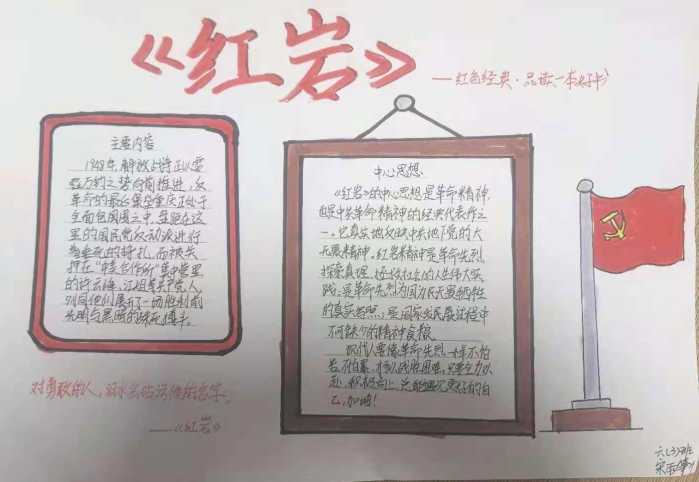 《红岩》
——红色经典·品读一本好书
主要内容
1948年,解放战争正以雷
霆万钧之势向前推进,反
革命的最后巢窟重庆正处于
全面包围之中,盘踞在这
里的国民党反动派进行
着垂死的挣扎,而被关
押在“中美合作所”集中营里
的许云峰、江姐等共产党人,
则同他们展开了一场胜利前
光明与黑暗的殊死搏斗。
对勇敢的人,
——《红岩》
中心思想
《红岩》的中心思想是革命精神,
也是中共革命精神的经典代表作之
一。也真实地反映中共地下党的大
无畏精神。红岩精神是革命先烈
探索真理、拯救社会的人生伟大实
践;是革命先烈为国为民无畏牺牲
的真实写照;是国家发展进程中
不可缺少的精神食粮。
现代人要像革命先烈一样不怕
苦,不怕累,勇敢战胜困难。只要全力以
赴,积极向上,总能遇见更好的自
己,加油!
六(3)班